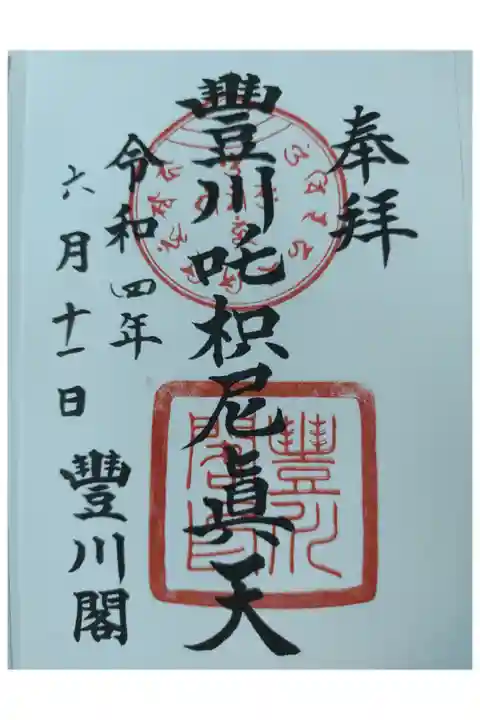 奉拜
豐川吒枳尼眞天
令和四年
六月十一日
豐川閣
豐川
閣印